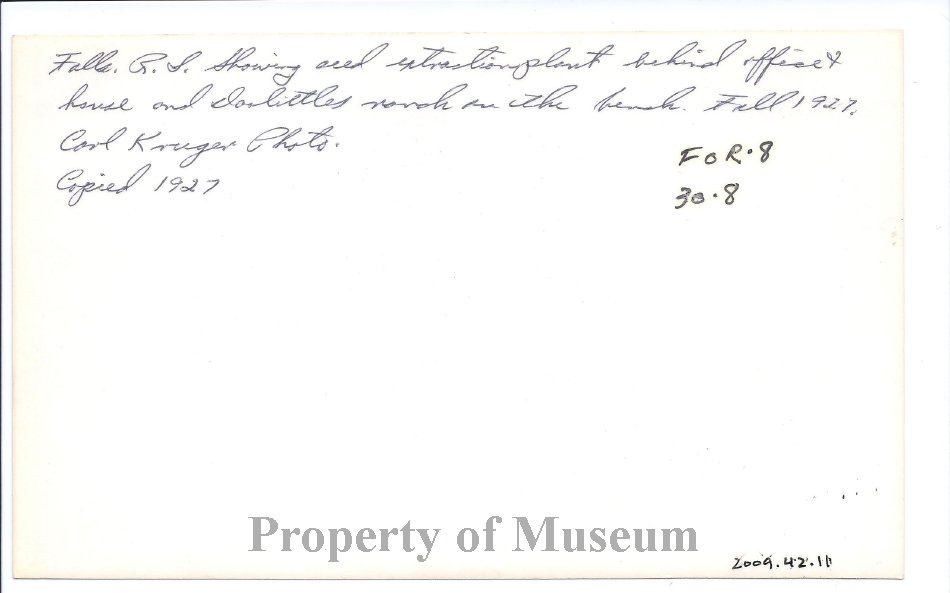 Falls. R.S. Showing seed extraction plant behind office &
house and Doolittles ranch on the bench. Fall 1927.
Carl Kruger Photo.
Copied 1927
FOR.8
30.8
Property of Museum
2009.42.11